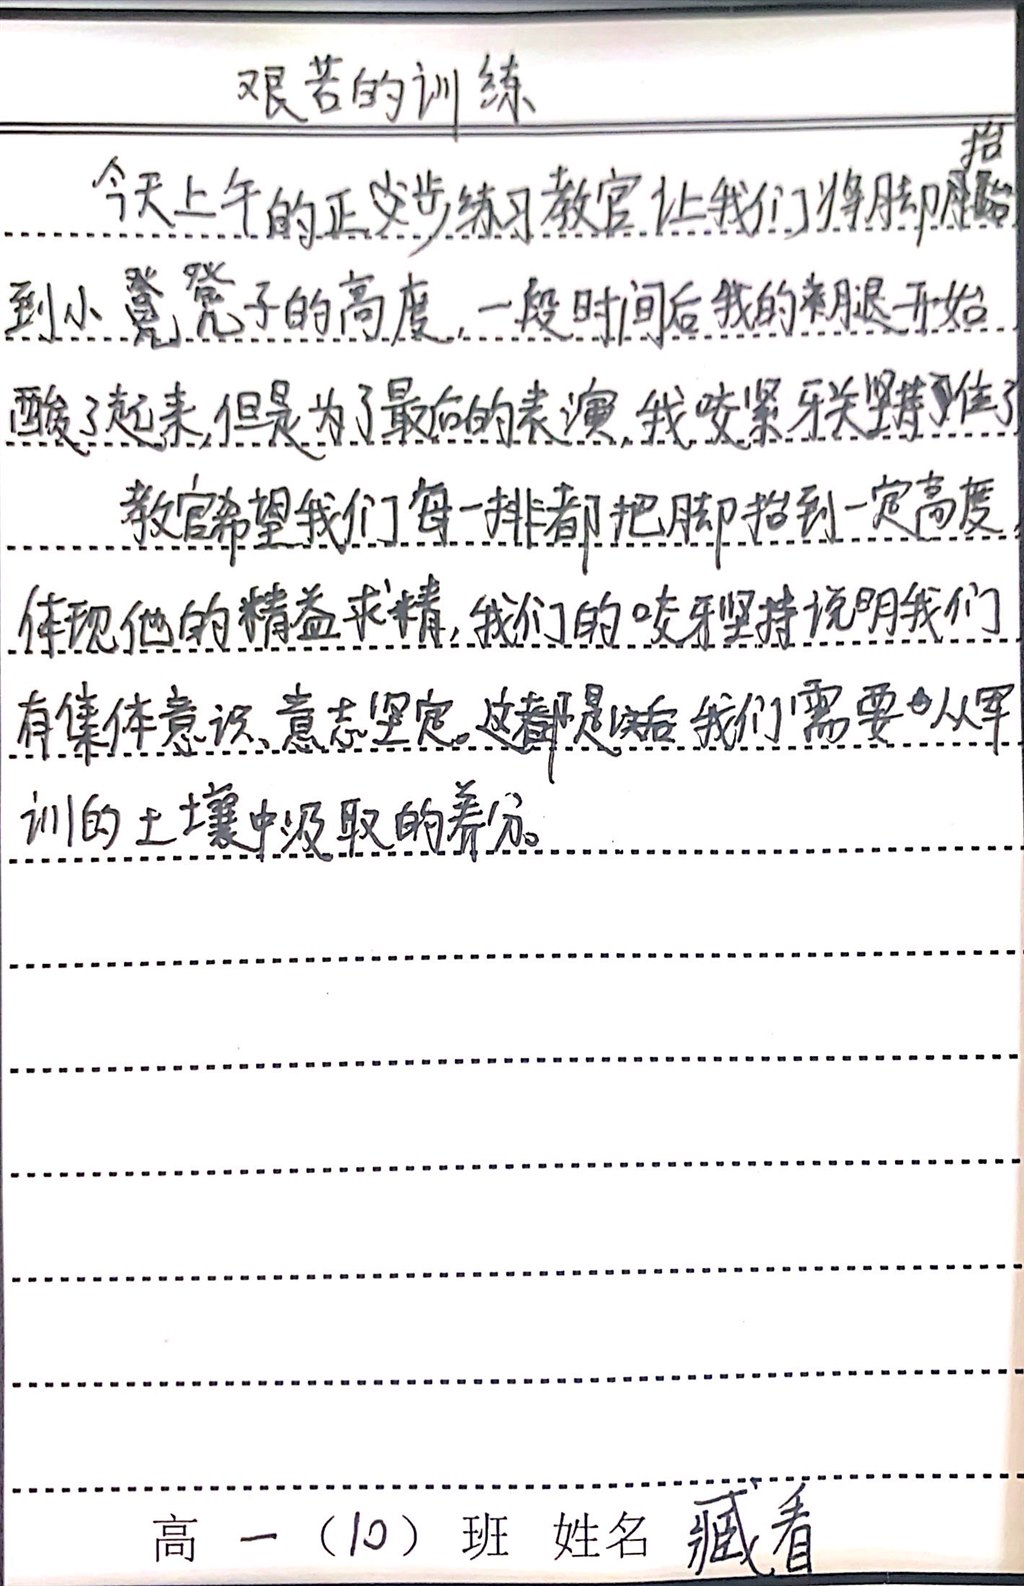 艰苦的训练
今天上午的正步练习教官让我们将脚抬
到小凳子的高度,一段时间后我的腿开始
酸了起来,但是为了最后的表演,我咬紧牙关坚持住了
教官希望我们每一排都把脚抬到一定高度,
体现他的精益求精,我们的咬牙坚持说明我们
有集体意识、意志坚定。这都是以后我们需要从军
训的土壤中汲取的养分。
高一(10)班 姓名 臧看